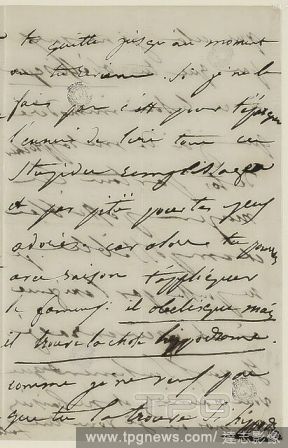 te quitte jusqu'au moment
où tu reviens. Si je ne le
fais pas c'est pour t'épargner
l'ennui de lire tous ces
stupides remplissages
et par pitié pour tes yeux
adorés car alors tu pourrais
avec raison t'appliquer
le fameux: il
et trouve la chose hypodrome.
comme je ne veux pas
que tu la trouves
www.tpgnews.com